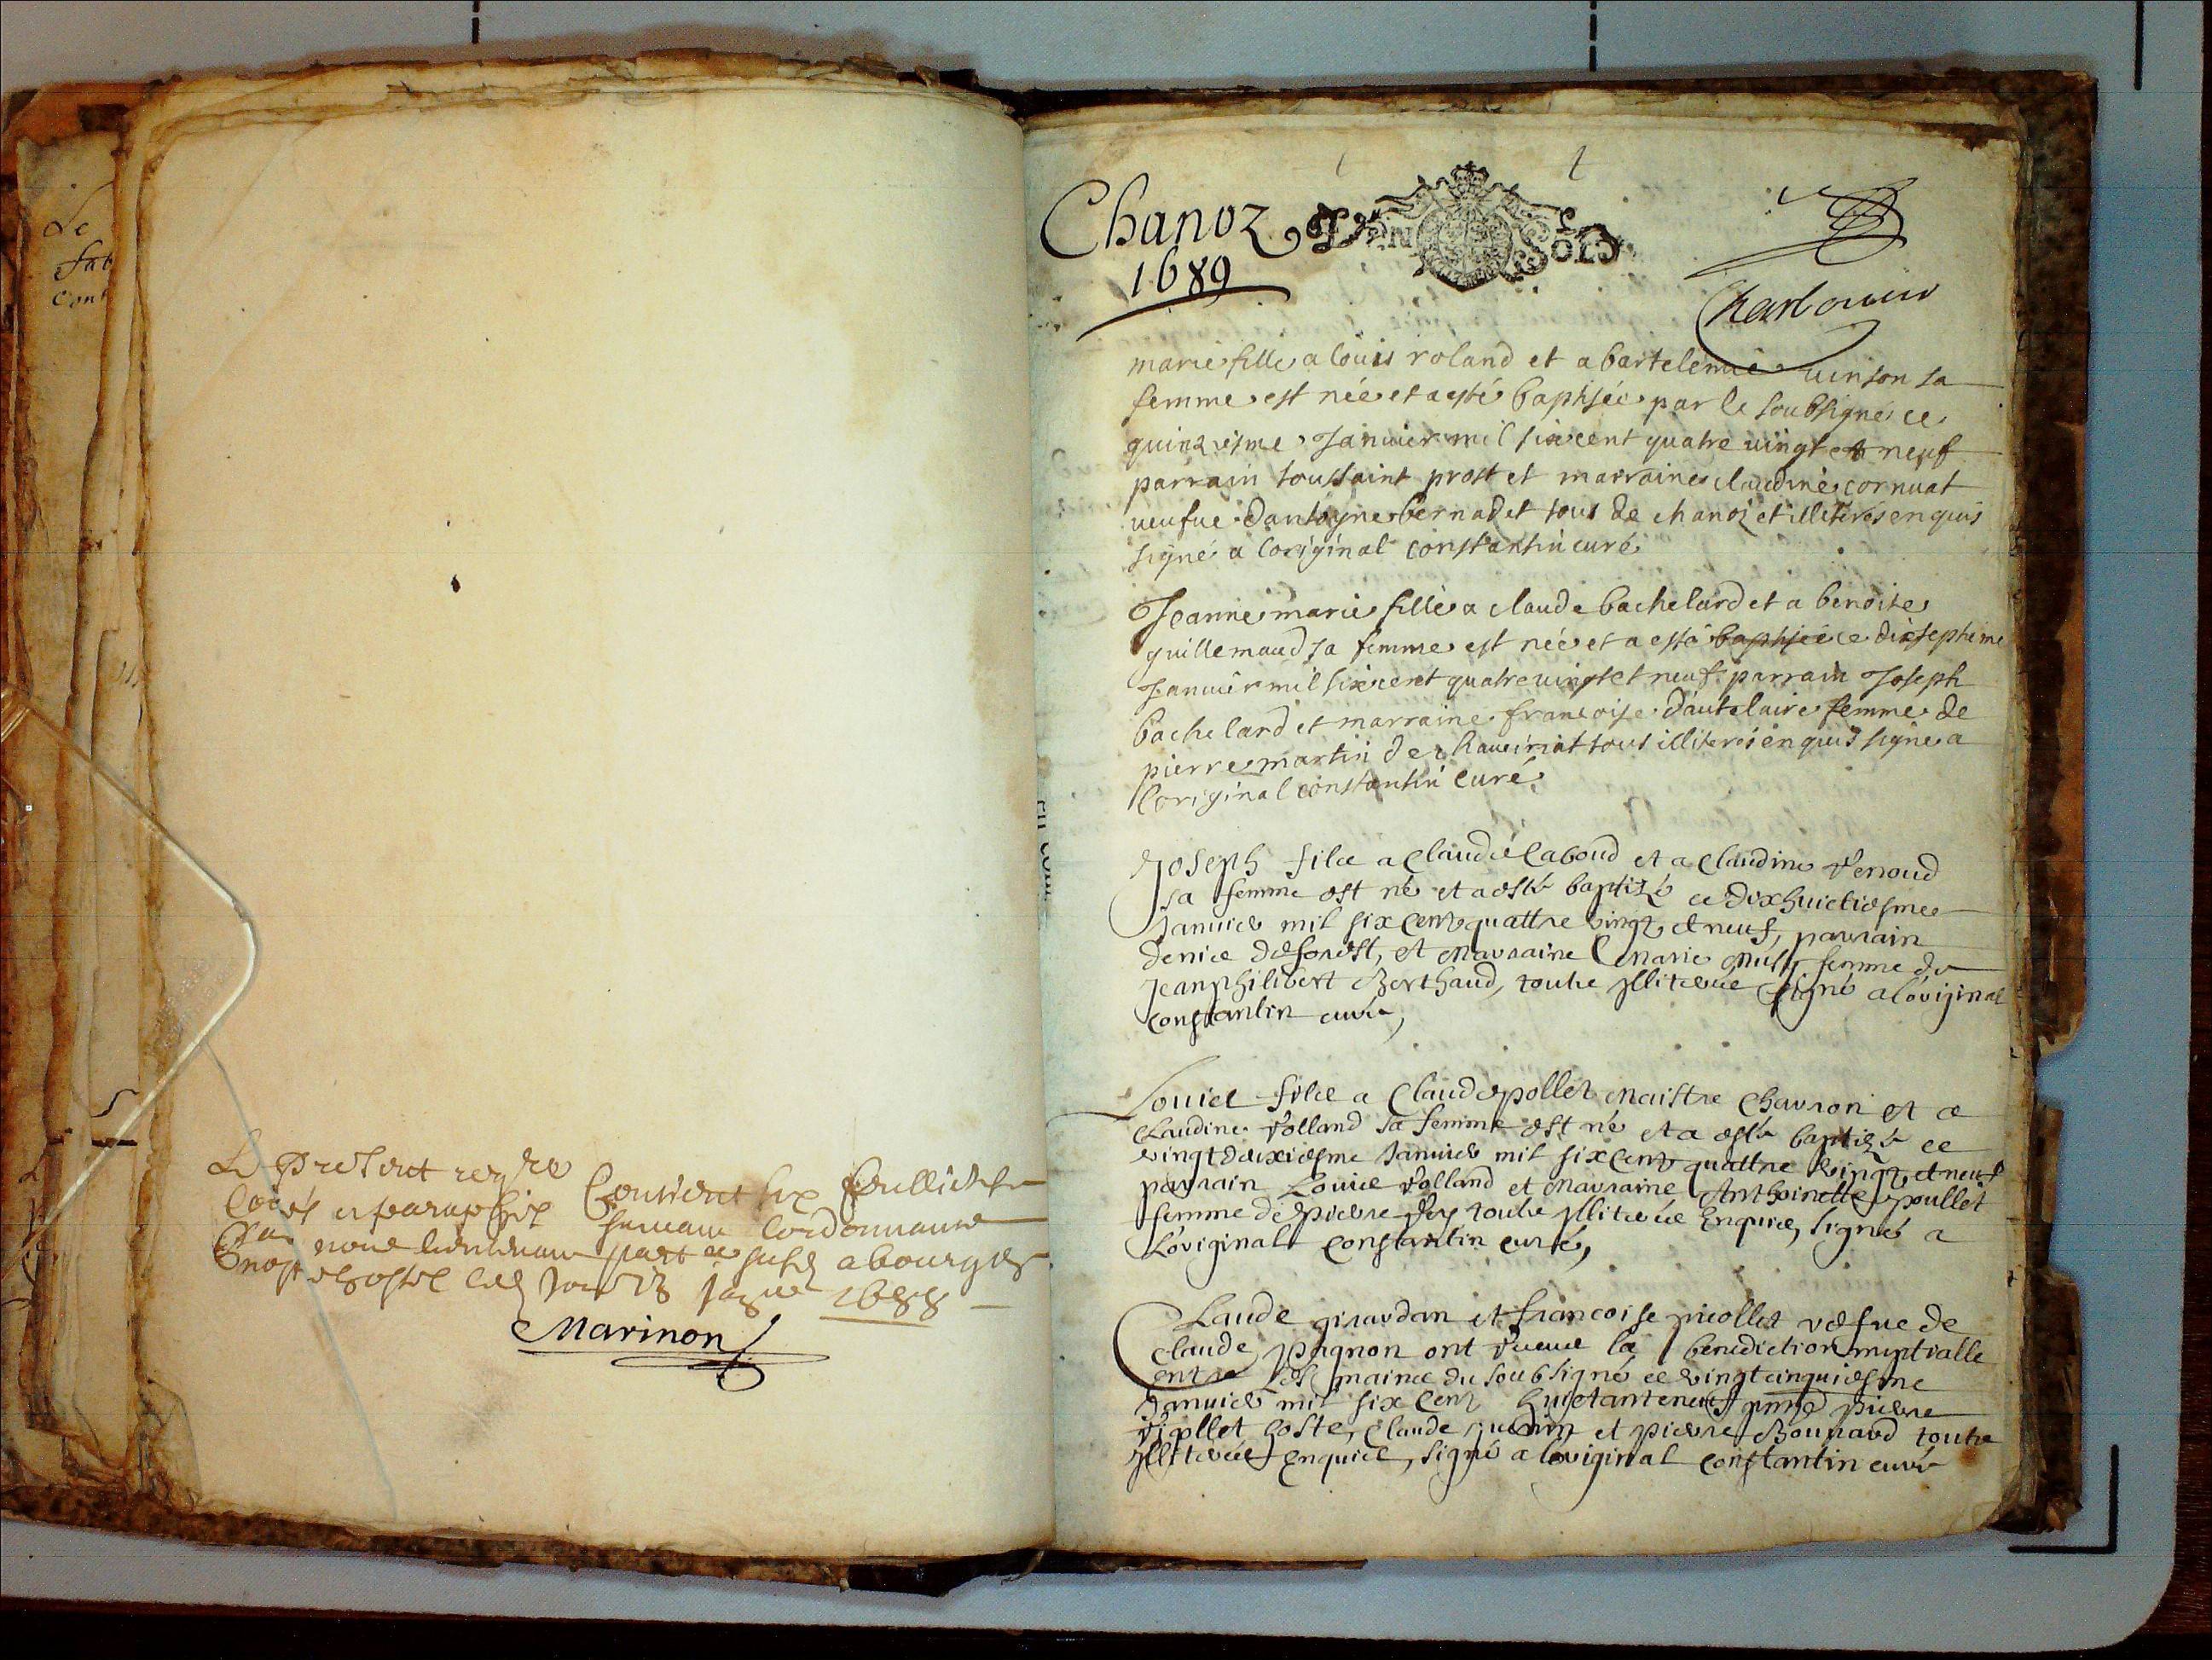 Le
fab
Cont
Le present regre Contient six feullietz
Cottés et paraphés suivant l'ordonnance
Par nous lieutenant part er au bourg
en nostre hostel le 1688
Marinon
Chanoz
1689
UN SOLS
Charbonnier
marie fille a louis roland et a bartelemie uinson sa
femme est née et a esté baptisée par le soubsigné ce
quinziesme Januier mil six cent quatre uingt et neuf
parrain toussaint prost et marraine claudine cornuat
ueufue dantoyne bernadet tous de chanoz et illiterés enquis
signé a loriginal constantin curé
Jeanne marie fille a claude bachelard et a benoite
guillemaud sa femme est née et a esté baptisée ce dixseptime
Januier mil six cent quatre uingt et neuf parrain Joseph
bachelard et marraine francoise dautelaire femme de
pierre martin de chaueiriat tous illiterés enquis signé a
loriginal constantin curé
Joseph filz a Claude Caboud et a Claudine Venoud
sa femme est né et a esté baptizé ce dixhuictiesme
Januier mil six Cent quattre vingt et neuf, parrain
denis deforest, et marraine Marie femme de
Jean philibert Berthaud, touts illiterés signé a loriginal
Constantin curé,
Louis filz a Claude pollet Maistre Charron et a
Claudine Volland sa femme est né et a esté baptizé ce
vingtdeuxiesme Januier mil six Cent quattre vingt et neuf
parrain Louis Volland et Marraine Anthoinette poullet
femme de pierre Rey touts illiterés Enquis, signé a
Loriginal Constantin curé,
Claude girardan et francoise picollet vefue de
Claude pagnon ont receue la benediction nuptialle
entre les mains du soubsigné ce vingtcinquiesme
Januier mil six Cent huictanteneuf pierre
Viollet hoste, Claude et pierre Bonnard touts
illiterés enquis, signé a loriginal Constantin curé